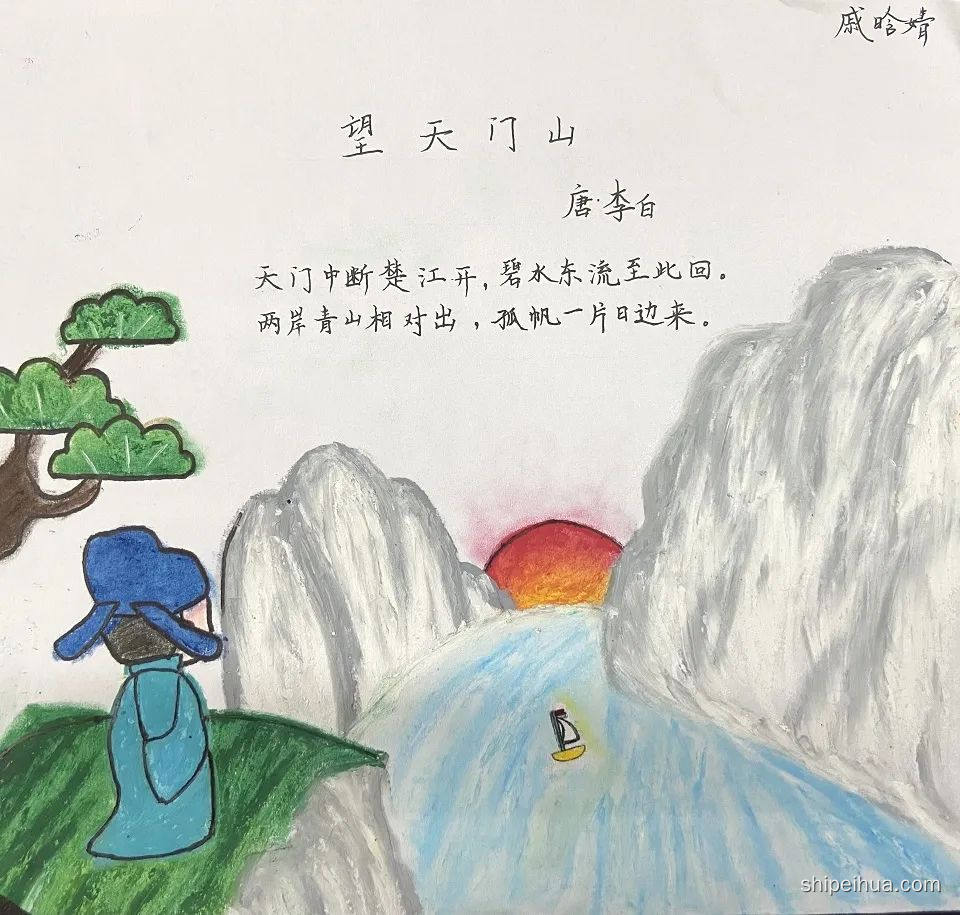 戚晗婧
望天门山
唐·李白
天门中断楚江开,碧水东流至此回。
两岸青山相对出,孤帆一片日边来。
shipeihua.com